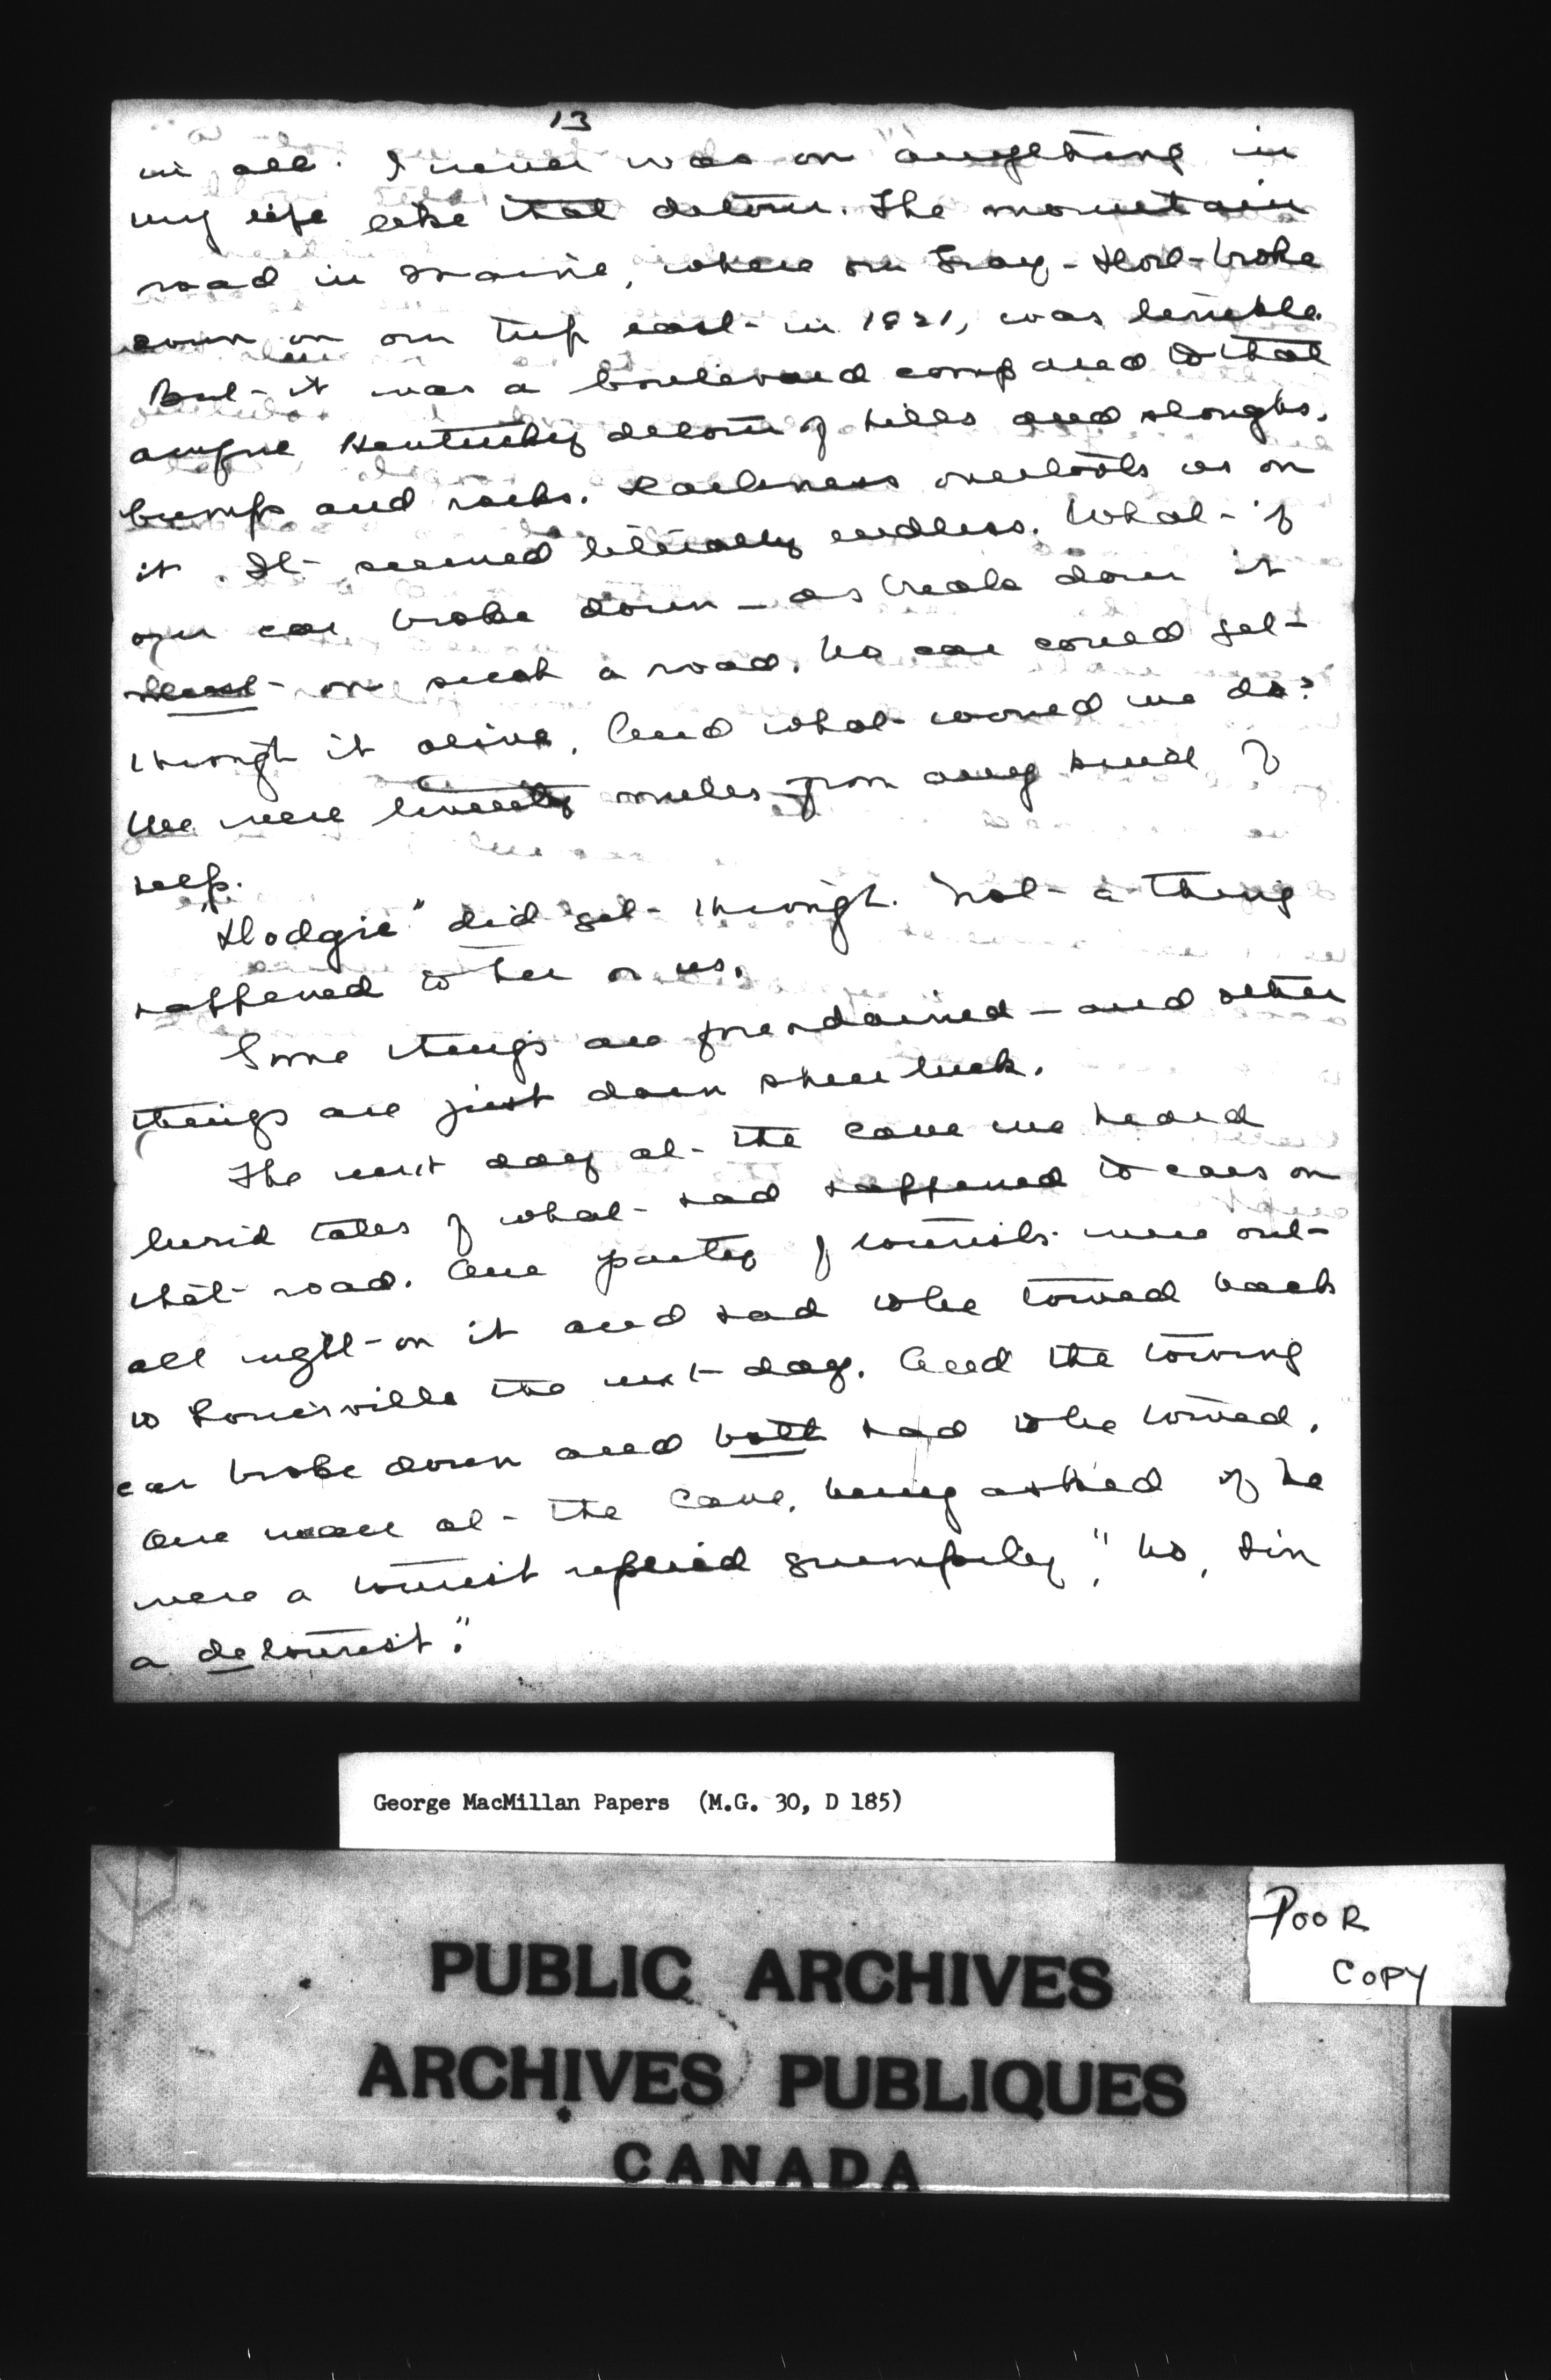 13
in all. I never was on anything in
my life like that detour. The mountain
road in Maine, where our Gray-Dort broke
down on our trip east in 1921, was terrible.
But it was a boulevard compared to that
awful Kentucky detour of hills and sloughs,
bumps and rocks. Darkness overtook us on
it. It seemed literally endless. What if
our car broke down – as break down it
must on such a road. No car could get
through it alive. And what would we do?
We were twenty miles from any kind of
help.
"Dodgie" did get through. Not a thing
happened to her or us.
Some things are foreordained – and other
things are just darn sheer luck.
The next day at the cave we heard
lurid tales of what had happened to cars on
that road. One party of tourists were out
all night on it and had to be towed back
to Louisville the next day. And the towing
car broke down and both had to be towed.
One man at the Cave, being asked if he
were a tourist replied grumpily, "No, I'm
a detourist."
George MacMillan Papers (M.G. 30, D 185)
POOR
COPY
PUBLIC ARCHIVES
ARCHIVES PUBLIQUES
CANADA